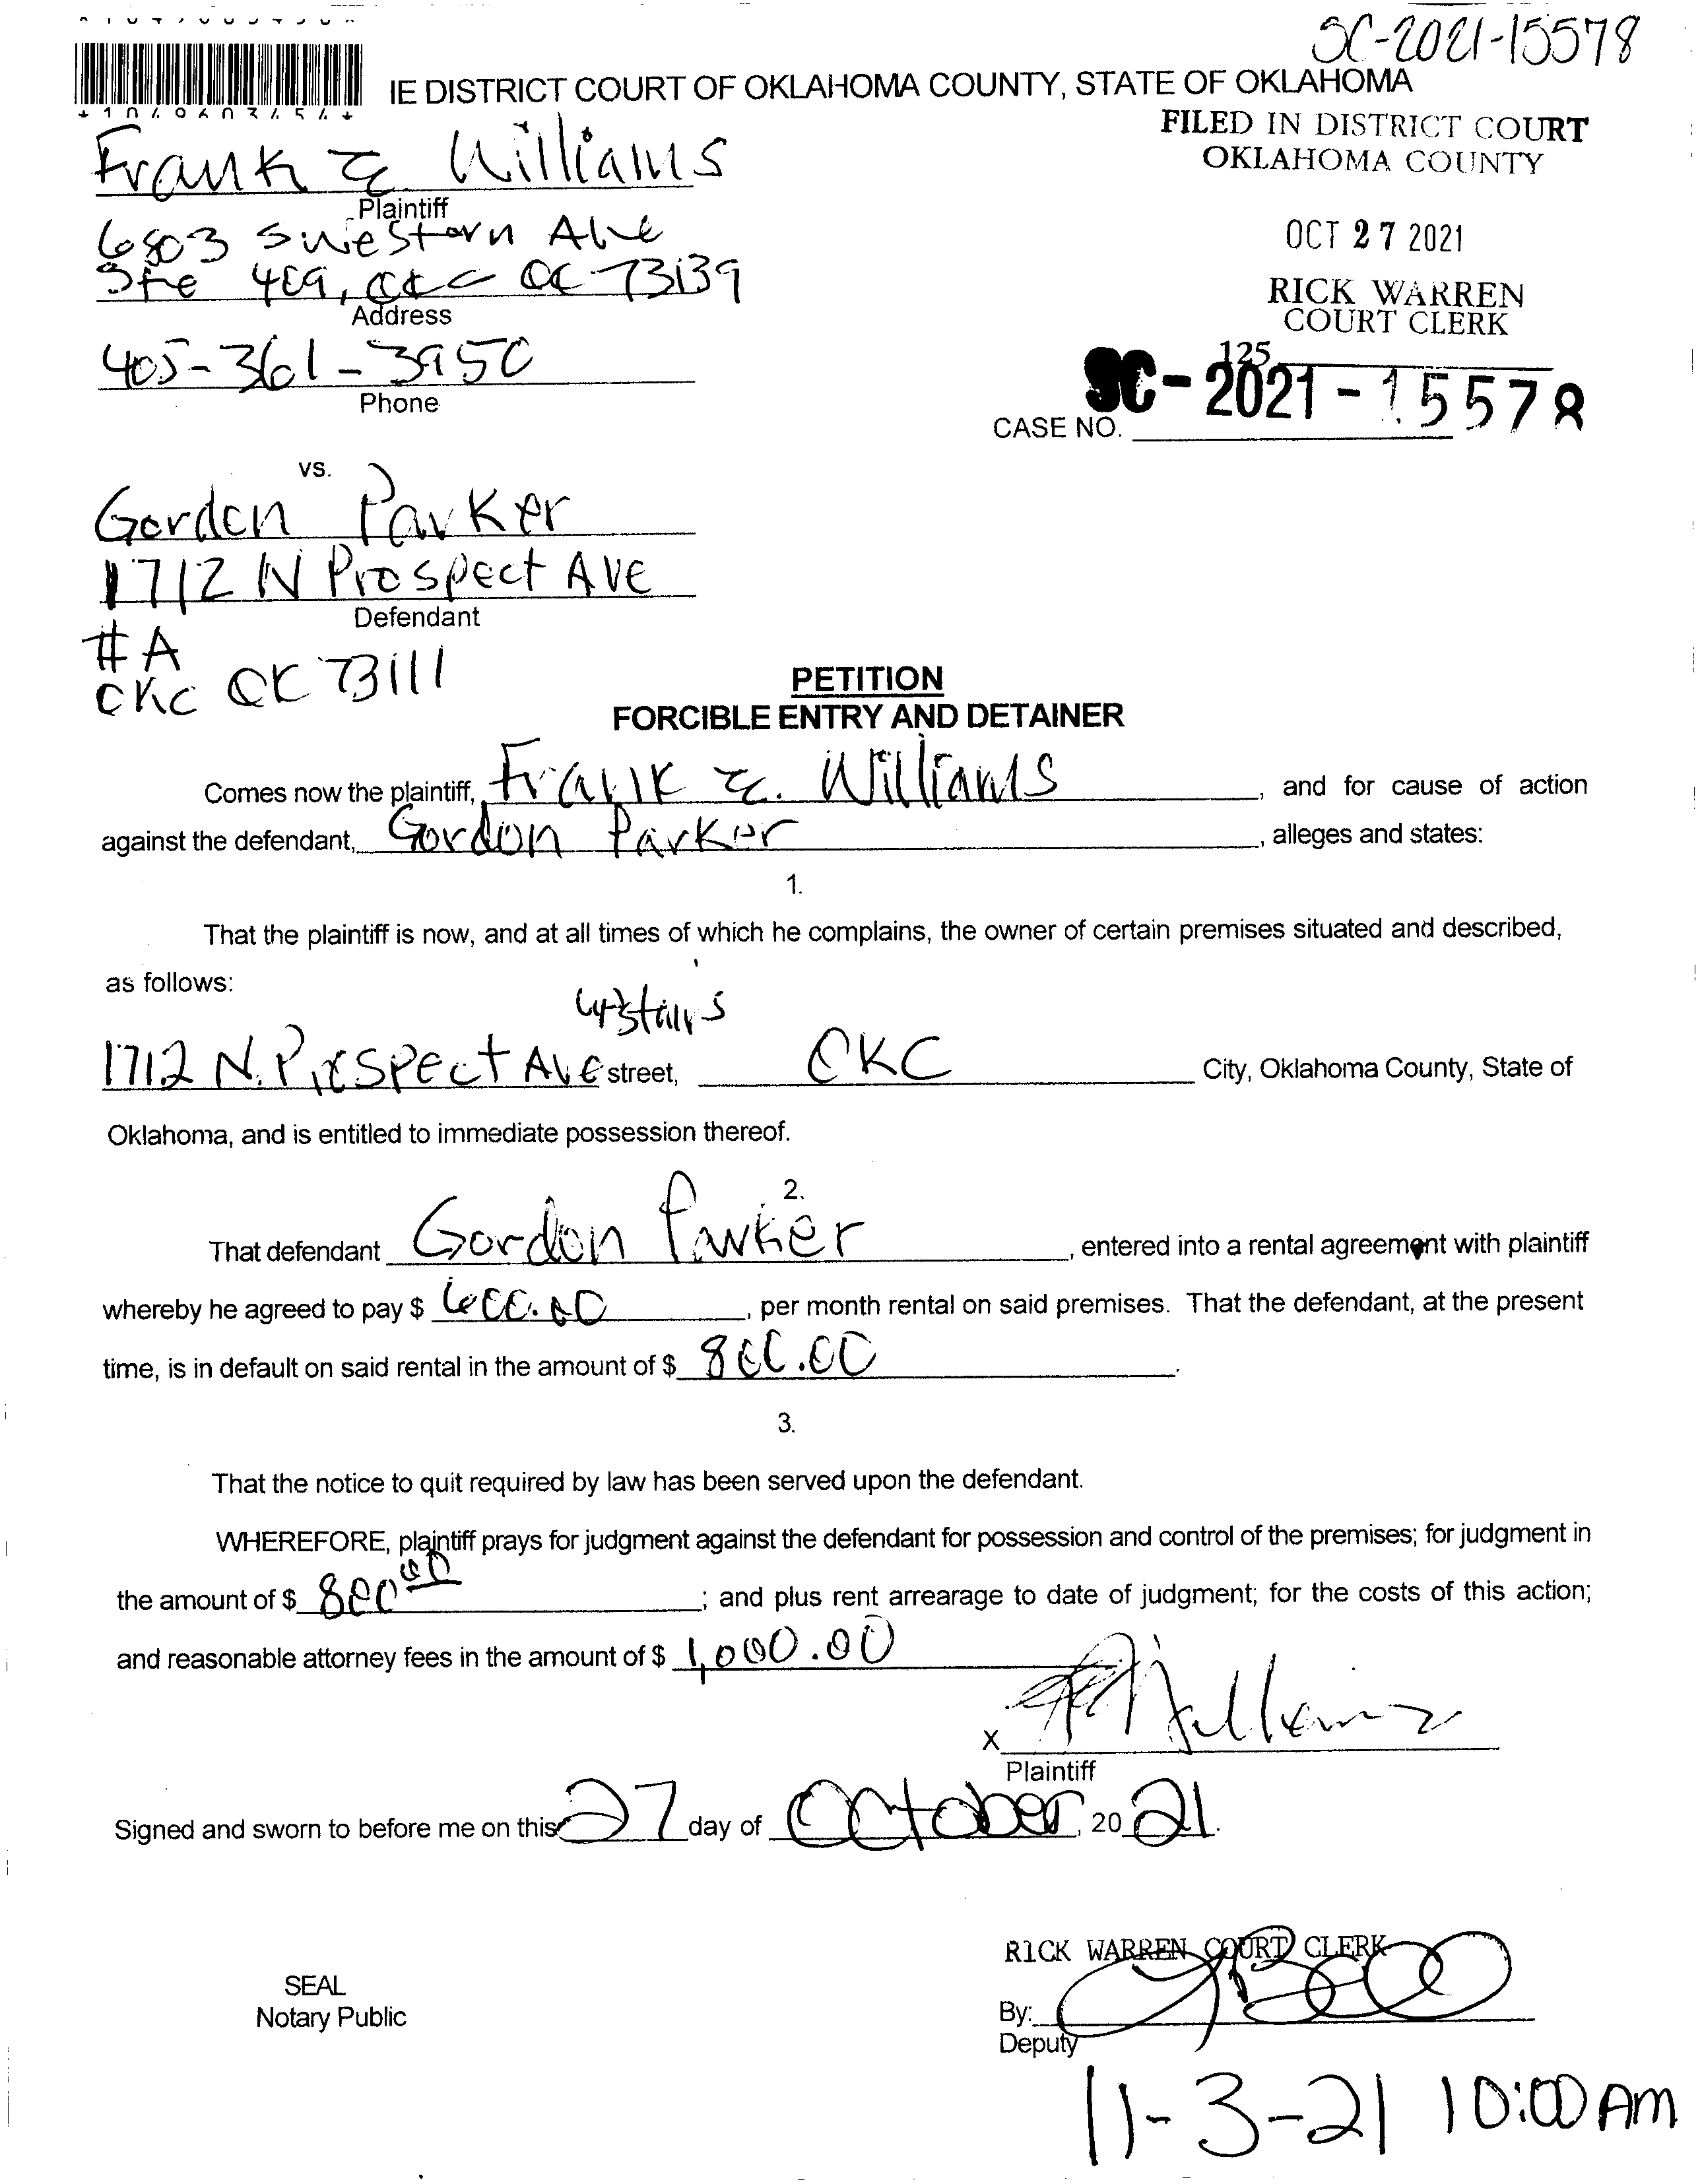 SC-2021-15578
IE DISTRICT COURT OF OKLAHOMA COUNTY, STATE OF OKLAHOMA
FILED IN DISTRICT COURT
OKLAHOMA COUNTY
OCT 27 2021
RICK WARREN
COURT CLERK
125
SC-2021-15578
CASE NO.
Frank E Williams
Plaintiff
6803 S Western Ave
Ste 409, OKC OK 73139
Address
405-361-3950
Phone
vs.
Gordon Parker
1712 N Prospect AVE
Defendant
#A
OKC OK 73111
PETITION
FORCIBLE ENTRY AND DETAINER
Comes now the plaintiff, Frank E. Williams, and for cause of action
against the defendant, Gordon Parker, alleges and states:
1.
That the plaintiff is now, and at all times of which he complains, the owner of certain premises situated and described,
as follows:
upstairs
1712 N. Prospect Ave street, OKC City, Oklahoma County, State of
Oklahoma, and is entitled to immediate possession thereof.
2.
That defendant Gordon Parker, entered into a rental agreement with plaintiff
whereby he agreed to pay $ 600.00, per month rental on said premises. That the defendant, at the present
time, is in default on said rental in the amount of $ 800.00.
3.
That the notice to quit required by law has been served upon the defendant.
WHEREFORE, plaintiff prays for judgment against the defendant for possession and control of the premises; for judgment in
the amount of $ 800 00; and plus rent arrearage to date of judgment; for the costs of this action;
and reasonable attorney fees in the amount of $ 1,000.00
X
Plaintiff
Signed and sworn to before me on this 27 day of October, 20 21.
RICK WARREN COURT CLERK
SEAL
Notary Public
By:
Deputy
11-3-21 10:00 AM